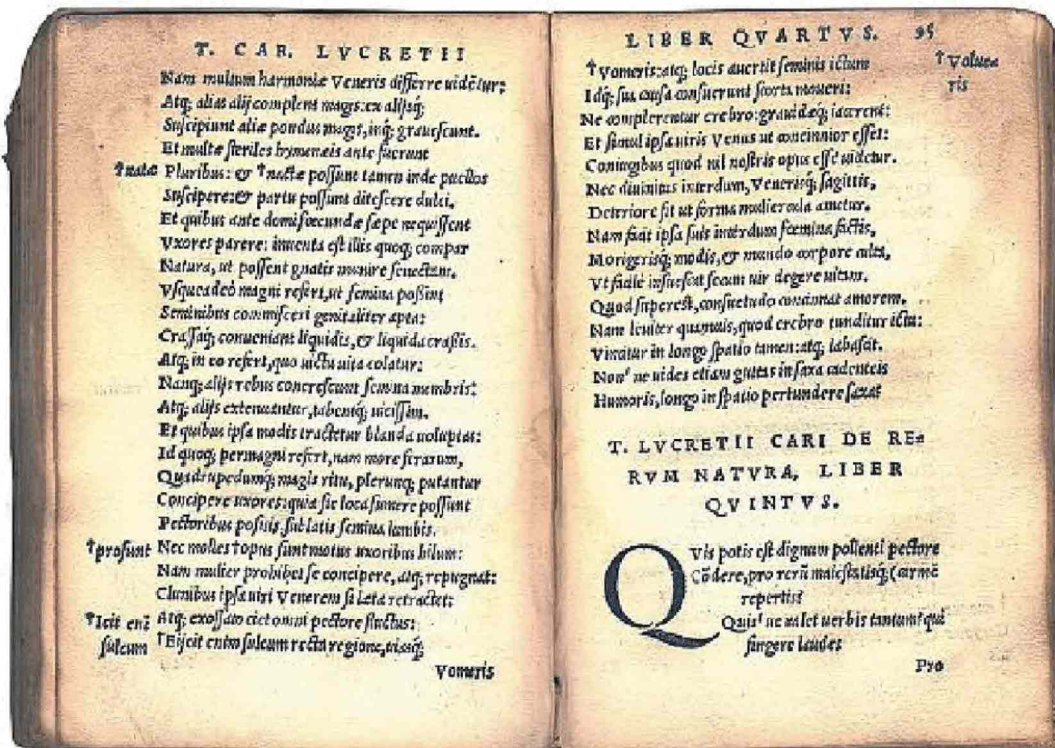 T. CAR. LVCRETII
Nam multum harmoniæ Veneris differre uidẽtur:
Atq; alias alij complent magis: ex alijsq;
Suscipiunt aliæ pondus magis, inq; grauescunt.
Et multæ steriles hymenæis ante fuerunt
†natæ Pluribus: & †nactæ possunt tamen inde puellos
Suscipere: & partu possunt ditescere dulci.
Et quibus ante domi fœcundæ sæpe nequissent
Vxores parere: inuenta est illis quoq; compar
Natura, ut possent gnatis munire senectam.
Vsqueadeò magni refert, ut semina possint
Seminibus commisceri genitaliter apta:
Crassaq; conueniant liquidis, & liquida crassis.
Atq; in eo refert, quo uictu uita colatur:
Nanq; alijs rebus concrescunt semina membris:
Atq; alijs extenuantur, tabentq; uicissim.
Et quibus ipsa modis tractetur blanda uoluptas:
Id quoq; permagni refert, nam more ferarum,
Quadrupedumq; magis ritu, plerunq; putantur
Concipere uxores: quia sic loca sumere possunt
Pectoribus positis, sublatis semina lumbis.
†prosunt Nec molles †opus sunt motus uxoribus hilum:
Nam mulier prohibet se concipere, atq; repugnat:
Clunibus ipsa uiri Venerem si læta retractet:
†Icit enĩ Atq; exossato ciet omni pectore fluctus:
sulcum †Eijcit enim sulcum recta regione, uiaq;
Vomeris
LIBER QVARTVS. 95
†Vomeris: atq; locis auertit seminis ictum †Volucaris
Idq; sua causa consuerunt scorta moueri:
Ne complerentur crebro: grauidæq; iacerent:
Et simul ipsa uiris Venus ut concinnior esset:
Coniugibus quod nil nostris opus esse uidetur.
Nec diuinitus interdum, Venerisq; sagittis,
Deteriore fit ut forma muliercula ametur.
Nam facit ipsa suis interdum fœmina factis,
Morigerisq; modis, & mundo corpore culta,
Vt facile insuescat secum uir degere uitam.
Quod superest, consuetudo concinnat amorem.
Nam leuiter quamuis, quod crebro tunditur ictu:
Vincitur in longo spatio tamen: atq; labascit.
Non' ne uides etiam guttas in saxa cadenteis
Humoris, longo in spatio pertundere saxa?
T. LVCRETII CARI DE RE=
RVM NATVRA, LIBER
QVINTVS.
QVis potis est dignum pollenti pectore
Cõdere, pro rerũ maiestatisq; (carmẽ
repertis?
Quis' ne ualet uerbis tantum? qui
fingere laudes
Pro